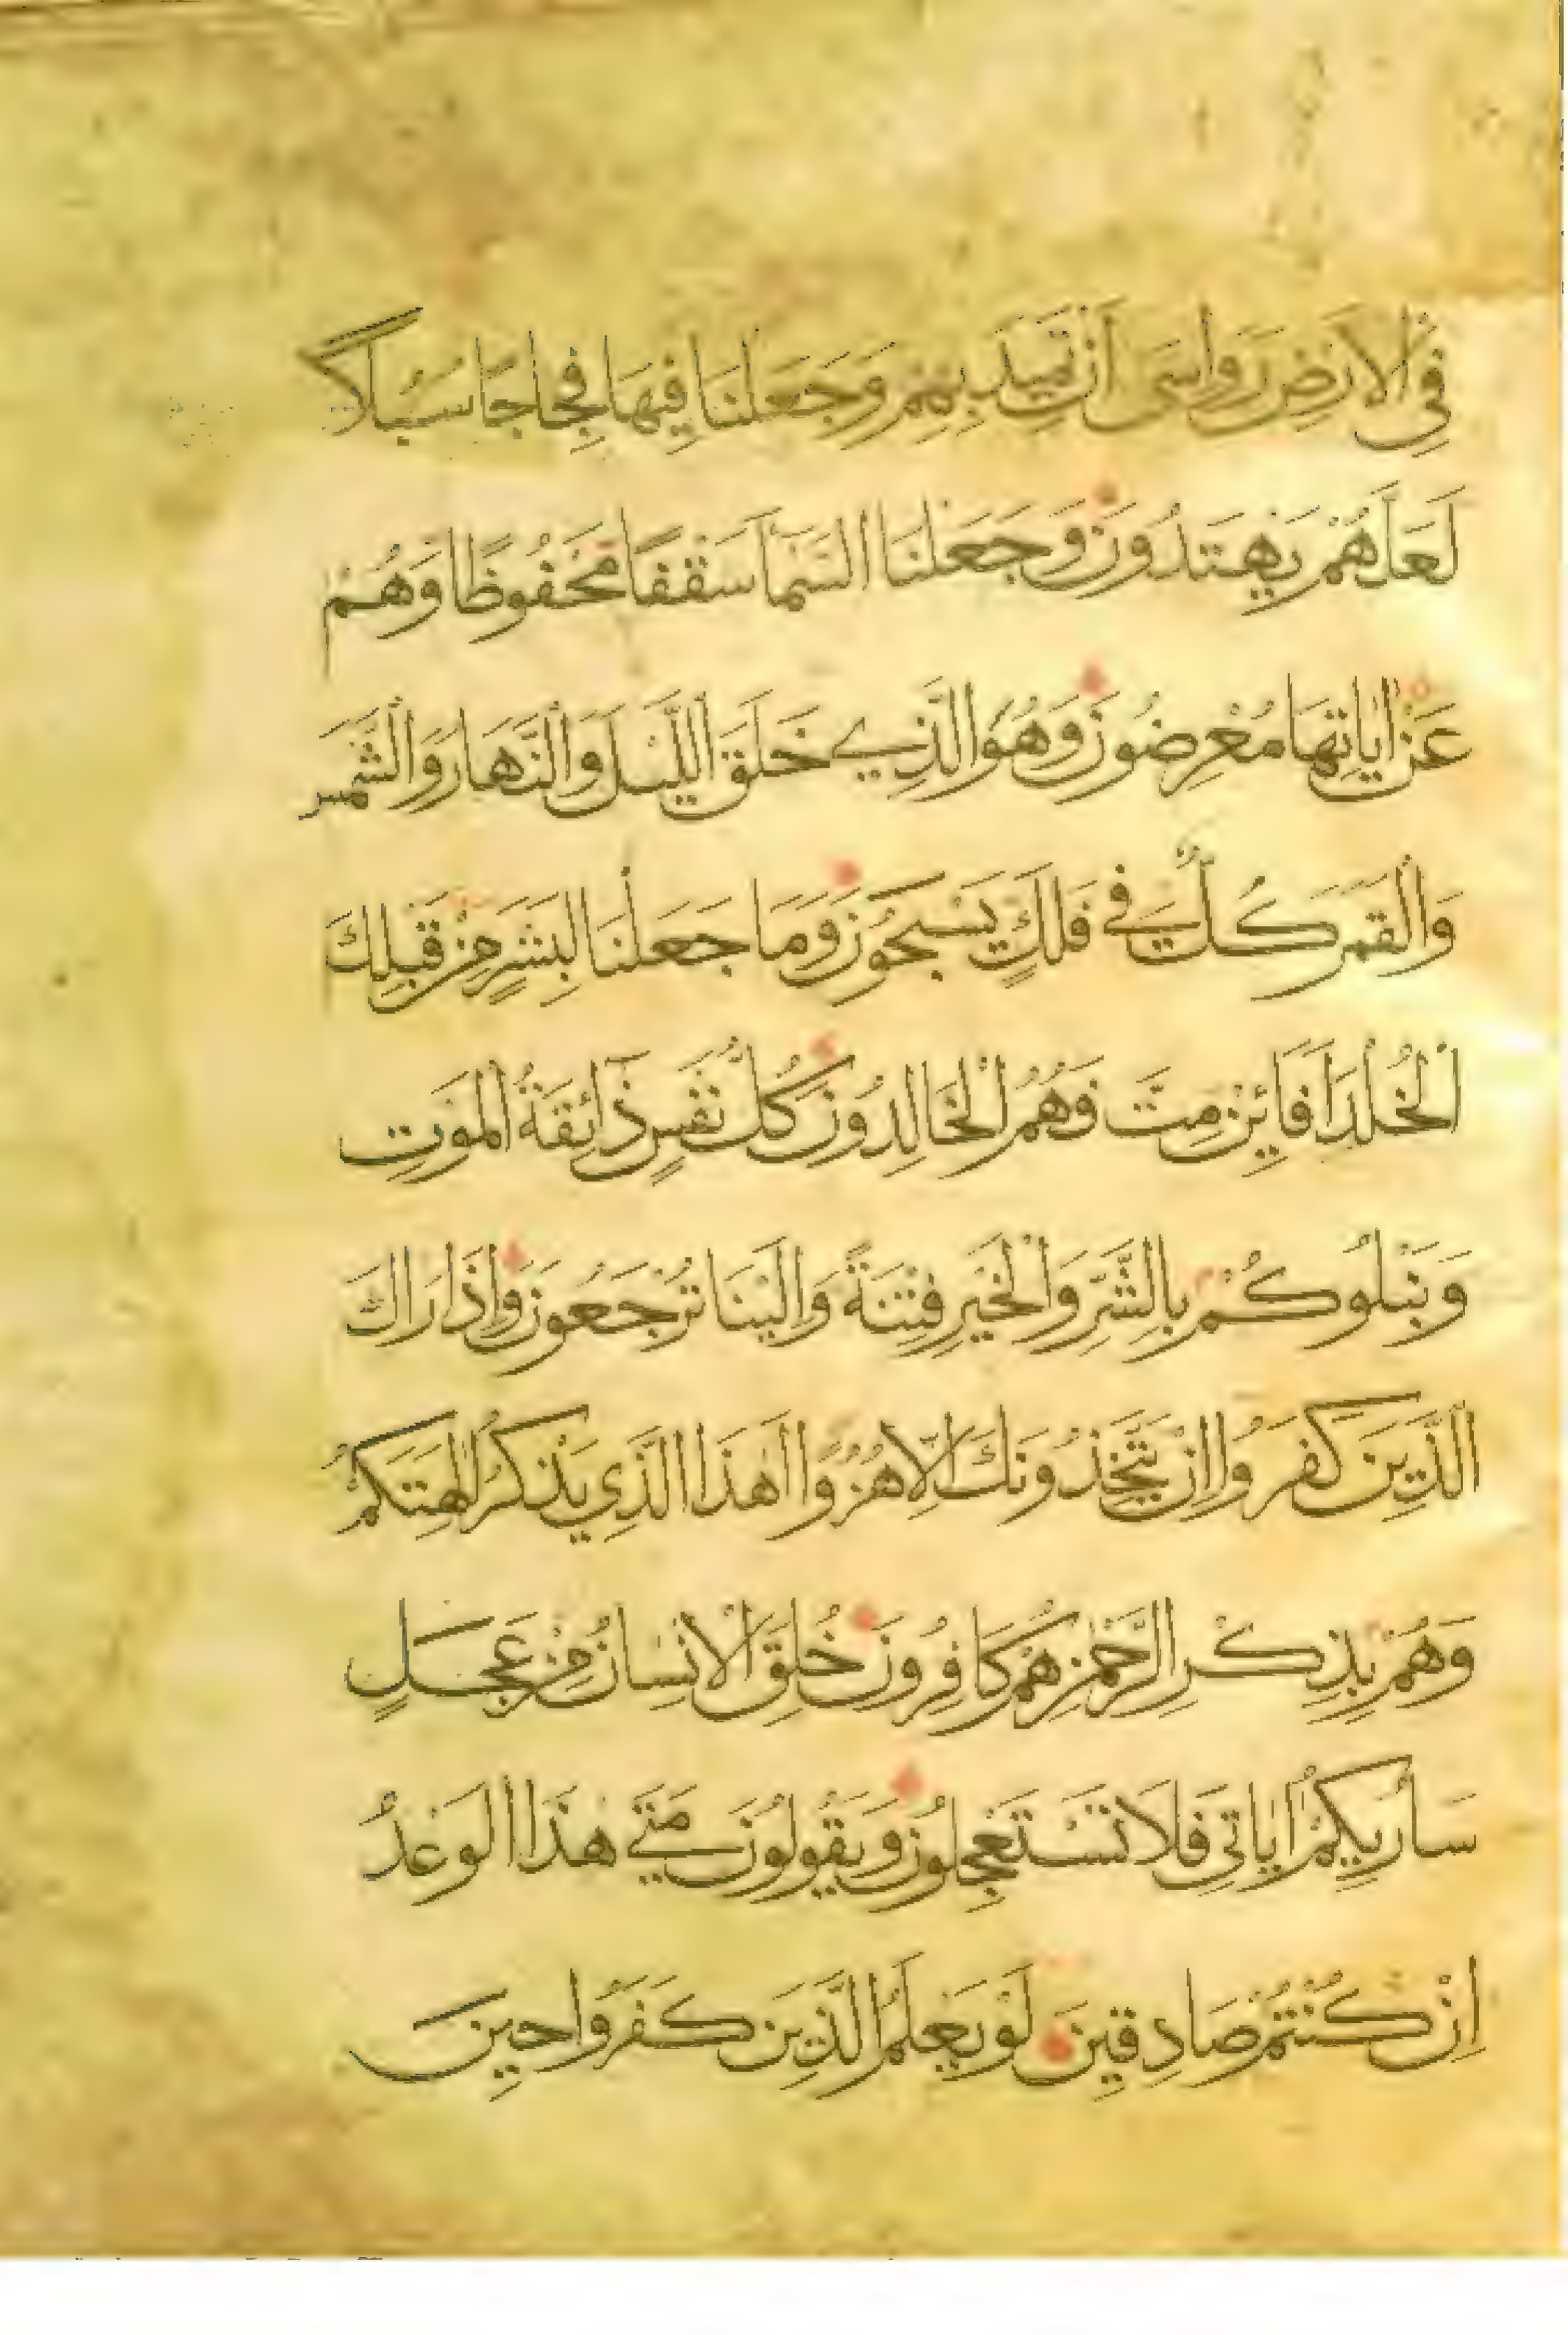 فِي الْاَرْضِ رَوَاسِيَ اَنْ تَمِيدَ بِهِمْ وَجَعَلْنَا فِيهَا فِجَاجًا سُبُلًا
لَعَلَّهُمْ يَهْتَدُونَ وَجَعَلْنَا السَّمَآ سَقْفًا مَحْفُوظًا وَهُمْ
عَنْ اٰيَاتِهَا مُعْرِضُونَ وَهُوَ الَّذِي خَلَقَ اللَّيْلَ وَالنَّهَارَ وَالشَّمْسَ
وَالْقَمَرَ كُلٌّ فِي فَلَكٍ يَسْبَحُونَ وَمَا جَعَلْنَا لِبَشَرٍ مِنْ قَبْلِكَ
الْخُلْدَ اَفَائِنْ مِتَّ فَهُمُ الْخَالِدُونَ كُلُّ نَفْسٍ ذَآئِقَةُ الْمَوْتِ
وَنَبْلُوكُمْ بِالشَّرِّ وَالْخَيْرِ فِتْنَةً وَاِلَيْنَا تُرْجَعُونَ وَاِذَا رَاكَ
الَّذِينَ كَفَرُوا اِنْ يَتَّخِذُونَكَ اِلَّا هُزُوًا اَهٰذَا الَّذِي يَذْكُرُ اٰلِهَتَكُمْ
وَهُمْ بِذِكْرِ الرَّحْمٰنِ هُمْ كَافِرُونَ خُلِقَ الْاِنْسَانُ مِنْ عَجَلٍ
سَاُرِيكُمْ اٰيَاتِي فَلَا تَسْتَعْجِلُونَ وَيَقُولُونَ مَتَى هٰذَا الْوَعْدُ
اِنْ كُنْتُمْ صَادِقِينَ لَوْ يَعْلَمُ الَّذِينَ كَفَرُوا حِينَ